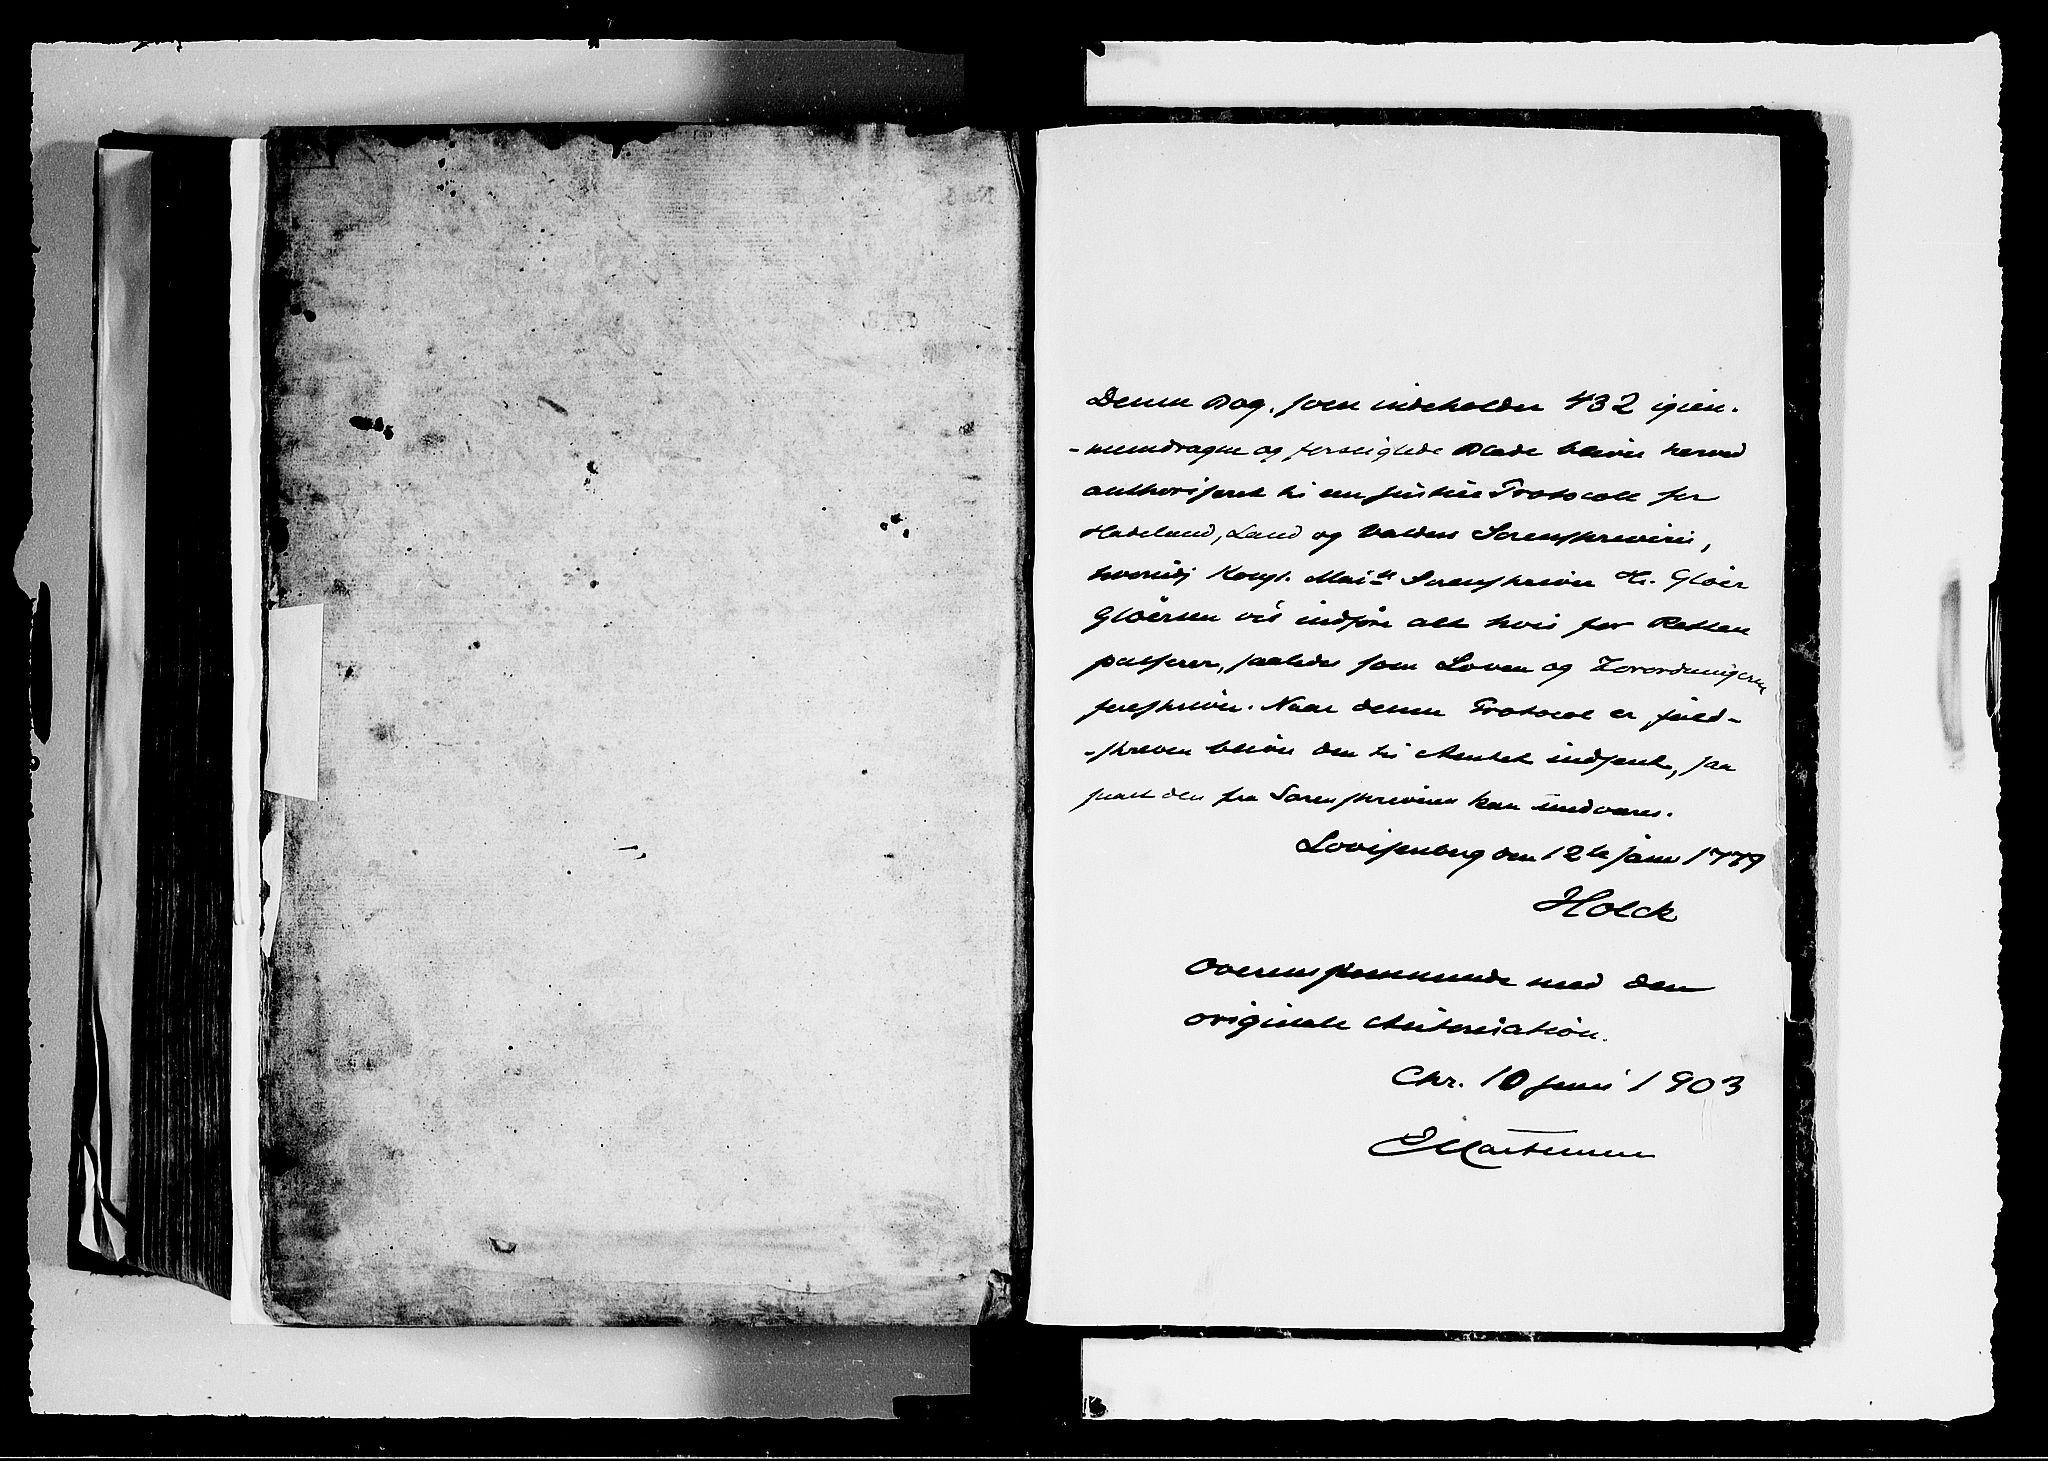 Denne Bog, som indeholder 432 igien-
-nemdragne og forseiglede Blade bliver herved
authoriseret til en Justice Protocoll for
Hadeland, Land og Valders Sorenskriverie,
hvorudj Kongl. Mai.ts Sorenskriver Hr. Gløer
Gløersen vil indføre alt hvis for Retten
passerer, saaledes som Loven og Forordningerne
foreskriver. Naar denne Protocol er fuld-
-skreven bliver den til Amtet indsent, saa
snart den fra Sorenskriveren kan undværes.
Lovisenberg den 12te Janr 1779
Holck
Overensstemmende med den
originale Autorisation.
Chr. 10 Juni 1903
E Martensen